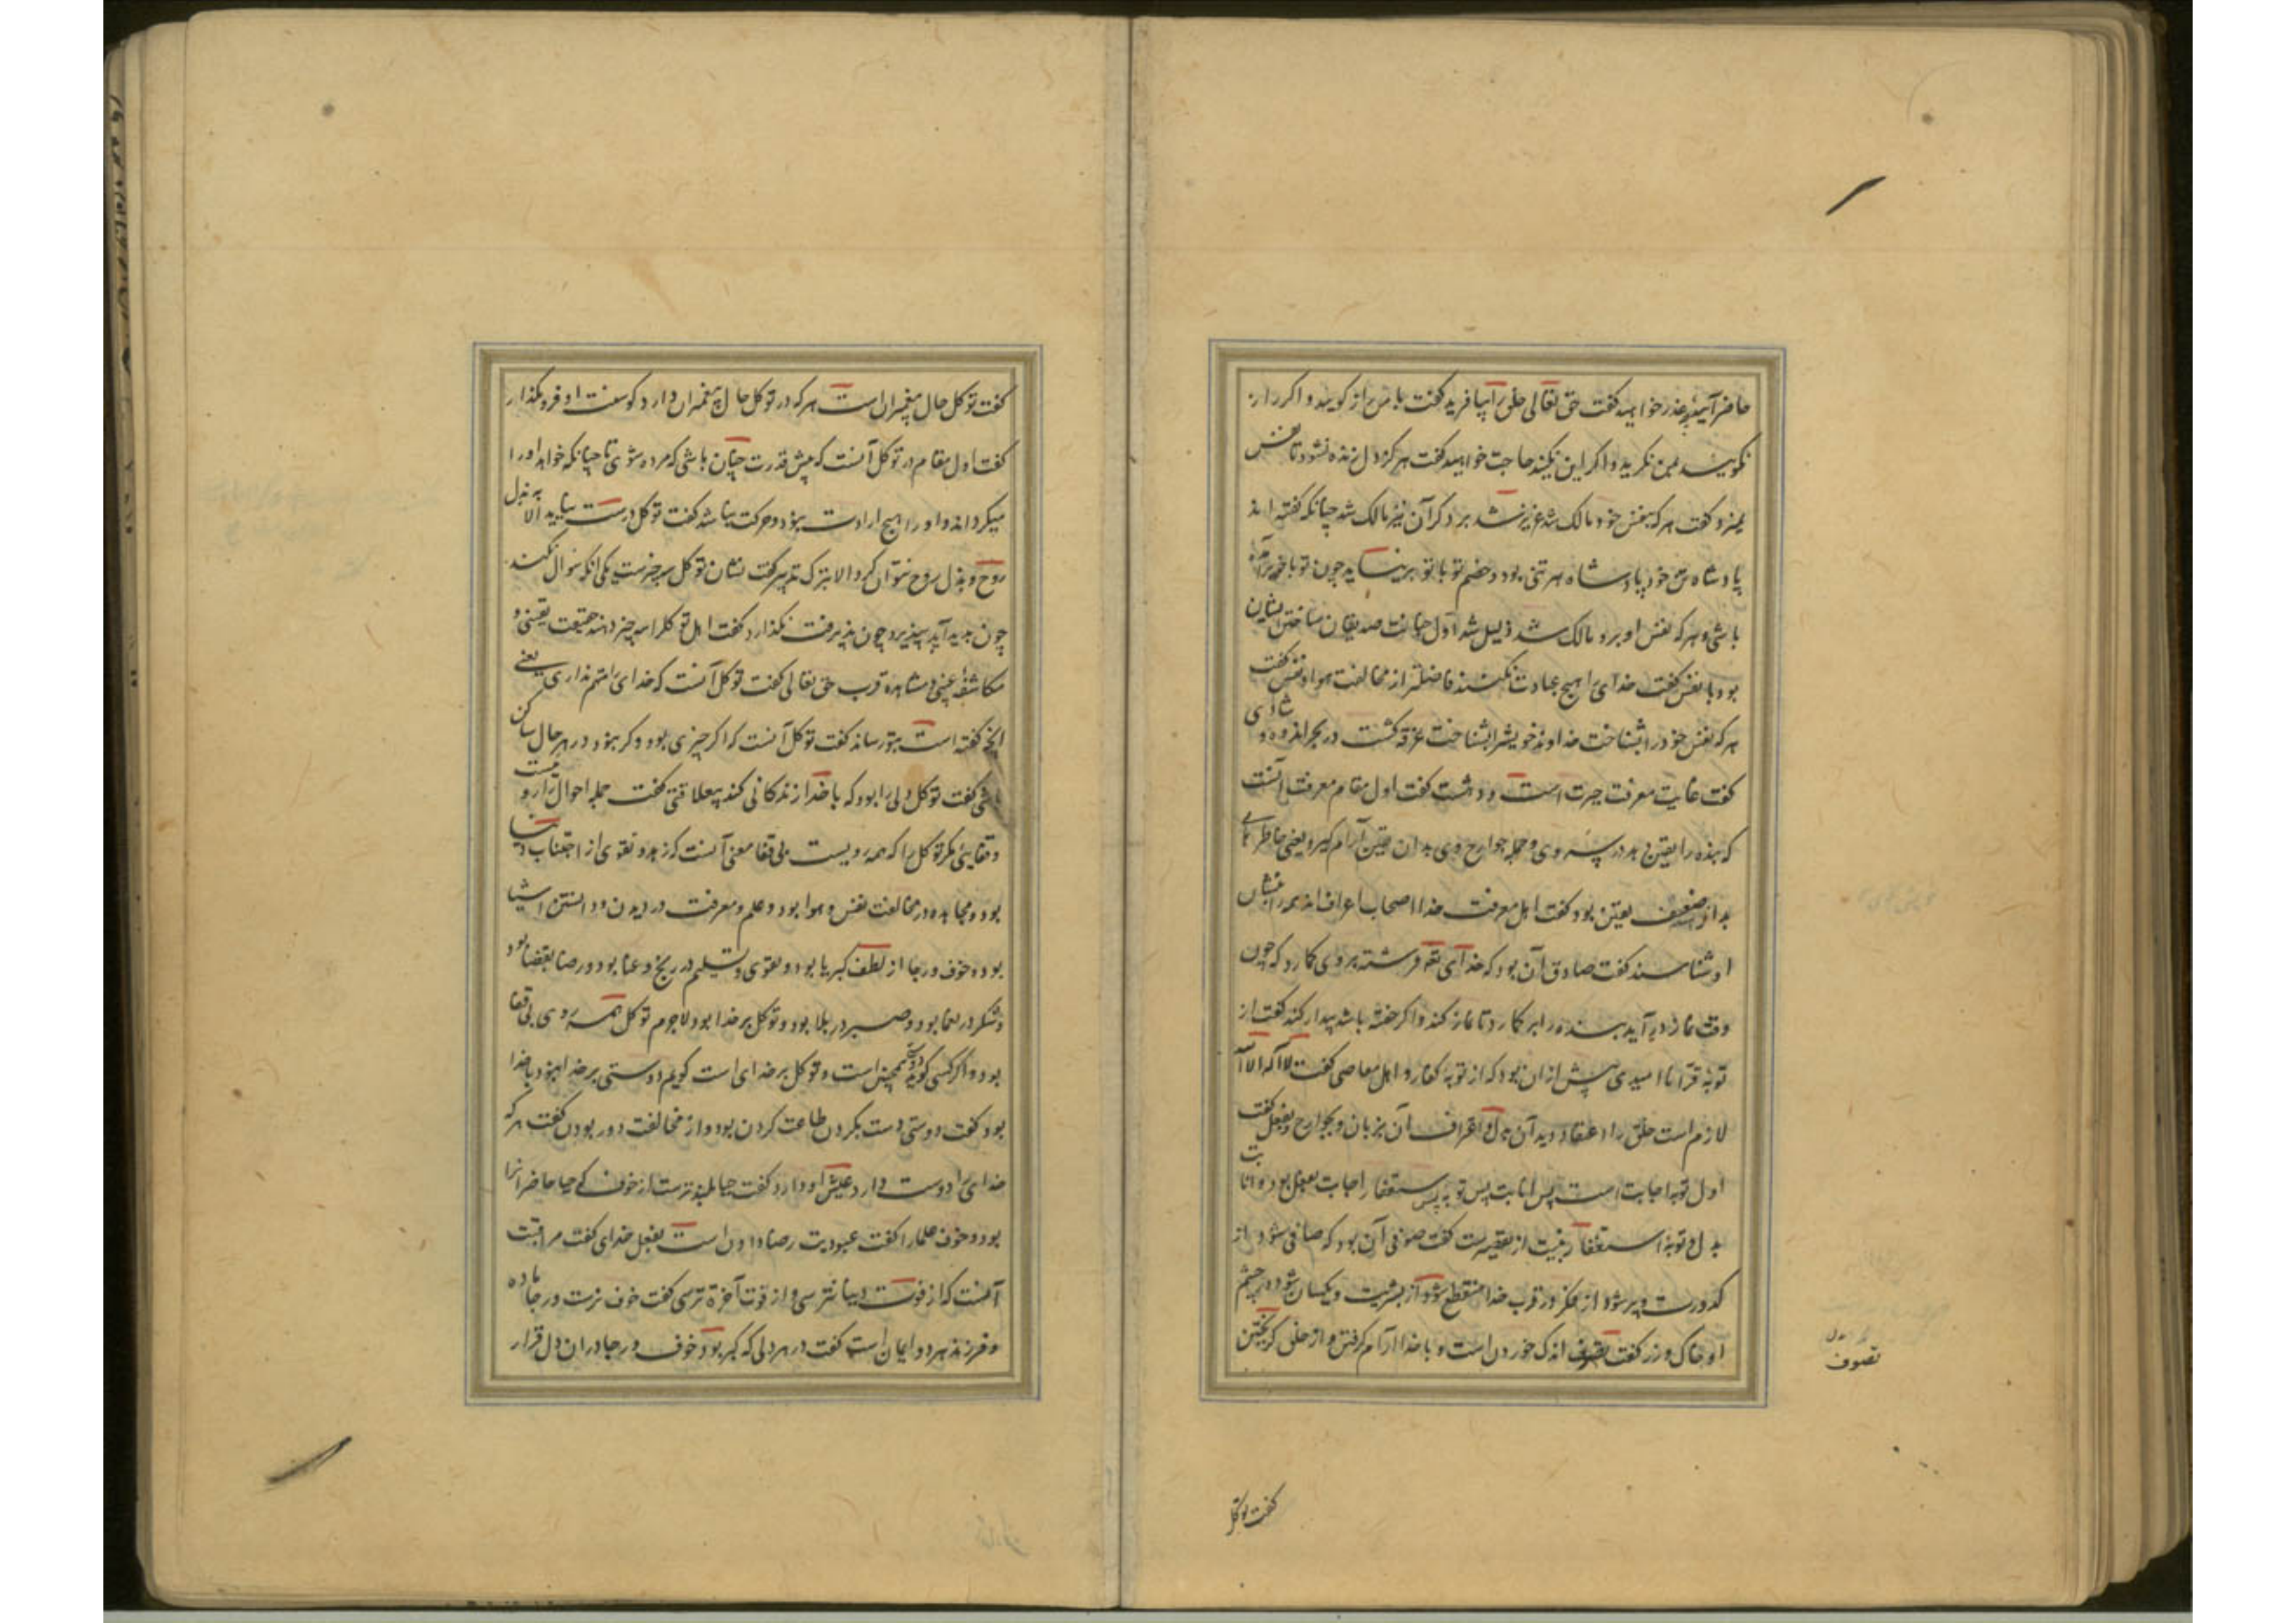 حاضر آیید عذر خواهید گفت حق تعالی خلق را بیافرید گفت با من راز گویید و اگر راز
نگویید بمن نگرید و اگر این نکنید حاجت خواهید گفت هرگز دل زنده نشود تا نفس
نمیرد و گفت هرکه بنفس خود مالک شد عزیز شد بر دگران نیز مالک شد چنانکه گفته‌اند
پادشاه تن خود پادشاه هر تنی بود و خصم تو با تو برنیاید چون تو با خود برآمده
باشی و هرکه نفس او برو مالک شد ذلیل شد اول جنایت صدیقان ساختن ایشان
بود با نفس گفت خدای را هیچ عبادت نکنند فاضلتر از مخالفت هوا و نفس گفت
هرکه نفس خود را شناخت خداوند خویش را بشناخت غرقه گشت در بحر اندوه و شادی
گفت غایت معرفت حیرت است و دهشت گفت اول مقام معرفت آنست
که بنده را یقین دهد در سر وی و جمله جوارح وی بدان یقین آرام گیرد یعنی خاطرهای
بد از ضعیف یقین بود گفت اهل معرفت خدا اصحاب اعراف‌اند همه را بنشان
او شناسند گفت صادق آن بود که خدای تعه فرشته بر وی گمارد که چون
وقت نماز درآید بنده را بر گمارد تا نماز کند و اگر خفته باشد بیدار کند گفت از
توبه قرا ناامیدی بیش از آن بود که از توبه کفار و اهل معاصی گفت لا اله الا الله
لازم است خلق را اعتقاد بدان بدل و اعتراف آن بزبان و بجوارح و بفعل گفت
اول توبه اجابت است پس انابت پس توبه پس استغفار اجابت بفعل بود و انابت
بدل و توبه استغفار بنیت از تقصیر است گفت صوفی آن بود که صافی شود از
کدورت و پر شود از فکر و در قرب خدا منقطع شود از بشریت و یکسان شود در چشم
او خاک و زر گفت تصوف اندک خوردن است و با خدا آرام گرفتن و از خلق گریختن
تصوف
گفت توکل
گفت توکل حال پیغمبران است هرکه در توکل حال پیغمبران دارد گو سنت او فرو مگذار
گفت اول مقام در توکل آنست که پیش قدرت چنان باشی که مرده شوی تا چنانکه خواهد او را
میگرداند و او را هیچ ارادت نبود و حرکت نباشد گفت توکل درست نیاید الا به بذل
روح و بذل روح نتوان کرد الا بترک تدبیر گفت نشان توکل سه چیز است یکی آنکه سوال نکند
چون پدید آید نپذیرد چون پذیرفت نگذارد گفت اهل توکل را سه چیز دهند حقیقت یقینی و
مکاشفهٔ عینی و مشاهده قرب حق تعالی گفت توکل آنست که خدای را متهم نداری یعنی
آنچه گفته است بتو رساند گفت توکل آنست که اگر چیزی بود و گر نبود در هر حال ساکن
باشی گفت توکل دلی را بود که با خدا زندگانی کند بی‌علاقتی گفت جمله احوال را رویست
و قفایی مگر توکل را که همه رویست بی قفا معنی آنست که زهد و تقوی از اجتناب دنیا
بود و مجاهده در مخالفت نفس و هوا بود و علم و معرفت در دیدن و دانستن اشیا
بود و خوف و رجا از لطف کبریا بود و تقوی و تسلیم در رنج و عنا بود و رضا بقضا بود
و شکر در نعما بود و صبر در بلا بود و توکل بر خدا بود لاجرم توکل همه روی بی قفا
بود و اگر کسی گوید دوستی همچنین است و توکل بر خدای است گویم دوستی بر خدا نبود با خدا
بود گفت دوستی دست بگردن طاعت کردن بود و از مخالفت دور بودن گفت هرکه
خدای را دوست دارد عیش او دارد گفت حیا بلندتر است از خوف که حیا حاضران را
بود و خوف علما را گفت عبودیت رضا دادن است بفعل خدای گفت مراقبت
آنست که از فوت دنیا نترسی و از فوت آخرة ترسی گفت خوف نرست و رجا ماده
و فرزند هر دو ایمان است گفت در هر دلی که کبر بود خوف و رجا در آن دل قرار